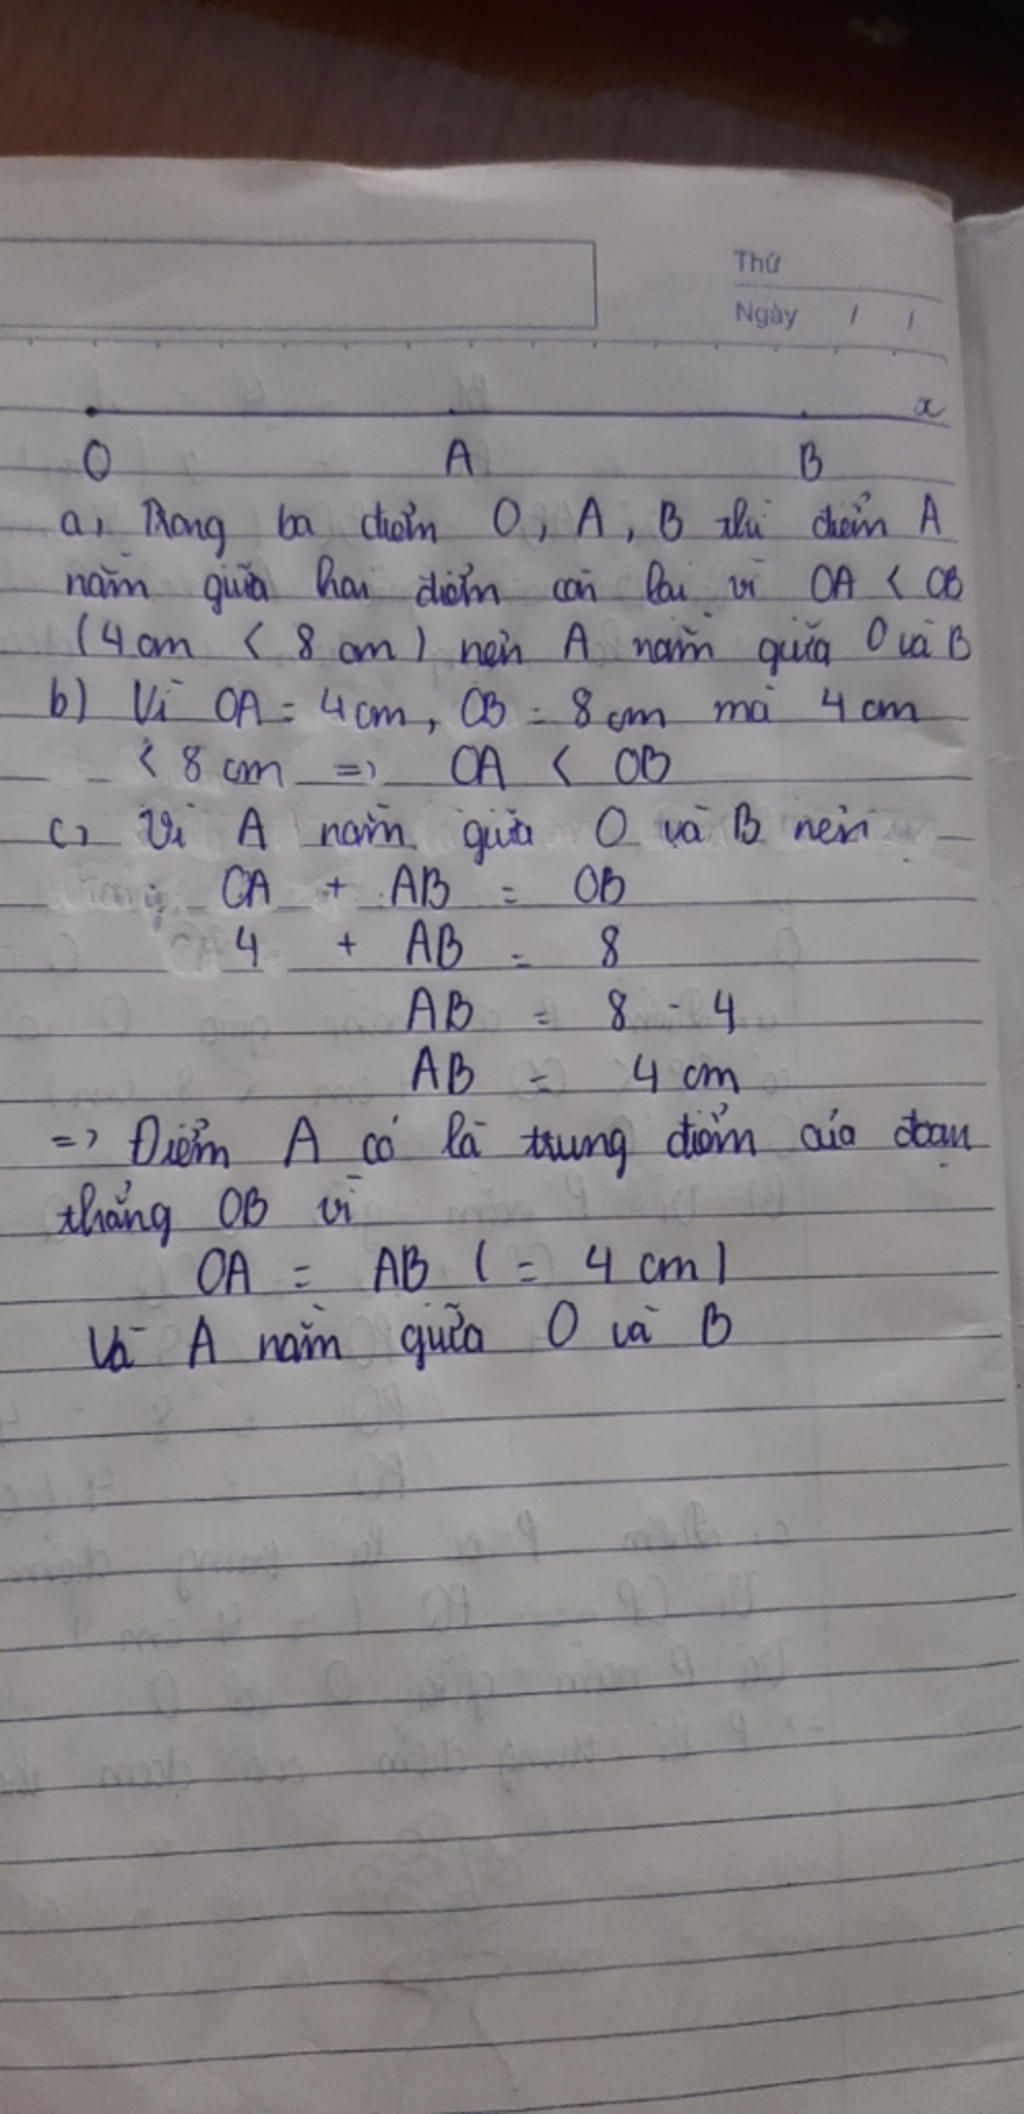 Thứ
Ngày / /
x
O A B
a, Trong ba điểm O, A, B thì điểm A
nằm giữa hai điểm còn lại vì OA < OB
(4cm < 8 cm) nên A nằm giữa O và B
b) Vì OA = 4cm, OB = 8cm mà 4 cm
< 8 cm => OA < OB
c, Vì A nằm giữa O và B nên
OA + AB = OB
4 + AB = 8
AB = 8 - 4
AB = 4 cm
=> Điểm A có là trung điểm của đoạn
thẳng OB vì
OA = AB ( = 4 cm)
Và A nằm giữa O và B